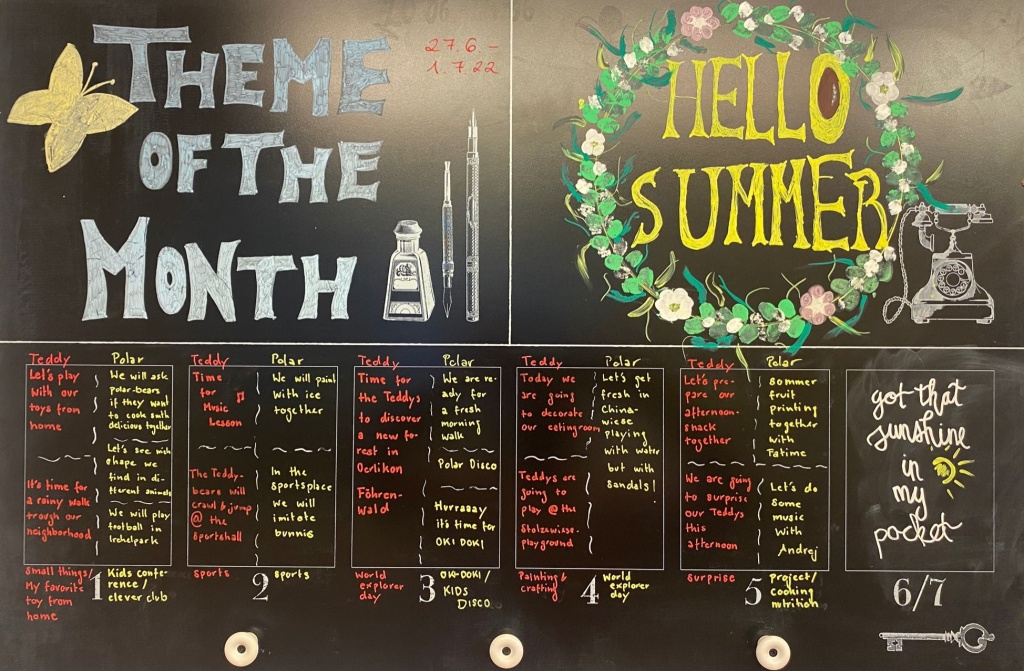 THEME
OF THE
MONTH
27.6. –
1.7.22
HELLO
SUMMER
Teddy
Let's play
with our
toys from
home
It's time for
a rainy walk
trough our
neighborhood
Small things/
My favorite
toy from
home
Polar
We will ask
polar-bears
if they want
to cook smth
delicious together
Let's see
shape we
find in di-
fferent animals
We will play
football in
Irchelpark
1
Kids confe-
rence/
clever club
Teddy
Time
for
Music
Lesson
The Teddy-
bears will
crawl & jump
@ the
sportshall
sports
Polar
We will paint
with ice
together
In the
sportsplace
We will
imitate
bunnis
2
sports
Teddy
Time for
the Teddys
to discover
a new fo-
rest in
Oerlikon
Föhren-
wald
World
explorer
day
Polar
We are re-
ady for
a fresh
morning
walk
Polar Disco
Hurraaay
it's time for
OKI DOKI
3
OKI-DOKI/
KIDS
DISCO
Teddy
Today we
are going
to decorate
our eatingroom
Teddys are
going to
play @ the
Stolzewiese-
playground
Painting &
crafting
Polar
Let's get
fresh in
China-
wiese
playing
with water
but with
sandals!
4
World
explorer
day
Teddy
Let's pre-
pare our
afternoon-
snack
together
We are going
to surprise
our Teddys
this
afternoon
surprise
Polar
Sommer
fruit
printing
together
with
Fatime
Let's do
some
music
with
Andrej
5
Project/
cooking
nutrition
got that
sunshine
in
my
pocket
6/7